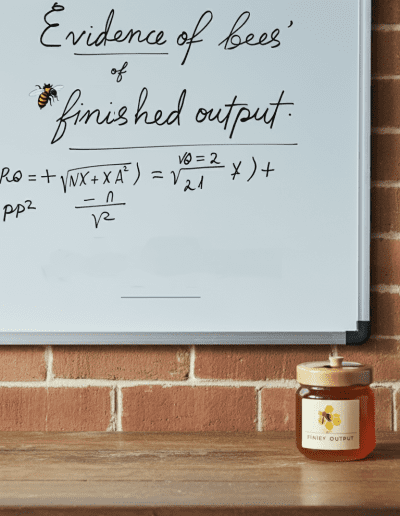 Evidence of bees'
of
finished output.
RQ = + √NX + XA²) = √VQ = 2 / 21 X) +
PP² - n / √2
HINIEY OUTPUT